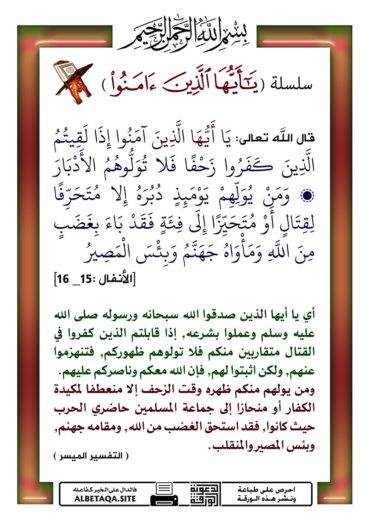 بسم الله الرحمن الرحيم
سلسلة ( يَٰٓأَيُّهَا ٱلَّذِينَ ءَامَنُوا۟ )
قال الله تعالى: يَا أَيُّهَا الَّذِينَ آمَنُوا إِذَا لَقِيتُمُ
الَّذِينَ كَفَرُوا زَحْفًا فَلا تُوَلُّوهُمُ الأَدْبَارَ
۞ وَمَنْ يُوَلِّهِمْ يَوْمَئِذٍ دُبُرَهُ إِلا مُتَحَرِّفًا
لِقِتَالٍ أَوْ مُتَحَيِّزًا إِلَى فِئَةٍ فَقَدْ بَاءَ بِغَضَبٍ
مِنَ اللَّهِ وَمَأْوَاهُ جَهَنَّمُ وَبِئْسَ الْمَصِيرُ
[الأنفال :15_ 16]
أي يا أيها الذين صدقوا الله سبحانه ورسوله صلى الله
عليه وسلم وعملوا بشرعه, إذا قابلتم الذين كفروا في
القتال متقاربين منكم فلا تولوهم ظهوركم, فتنهزموا
عنهم, ولكن اثبتوا لهم, فإن الله معكم وناصركم عليهم.
ومن يولهم منكم ظهره وقت الزحف إلا منعطفا لمكيدة
الكفار أو منحازا إلى جماعة المسلمين حاضري الحرب
حيث كانوا, فقد استحق الغضب من الله, ومقامه جهنم,
وبئس المصير والمنقلب.
( التفسير الميسر )
احرص على طباعة
ونشر هذه الورقة
الدعوية
الورقة
فالدال على الخير كفاعله
ALBETAQA.SITE